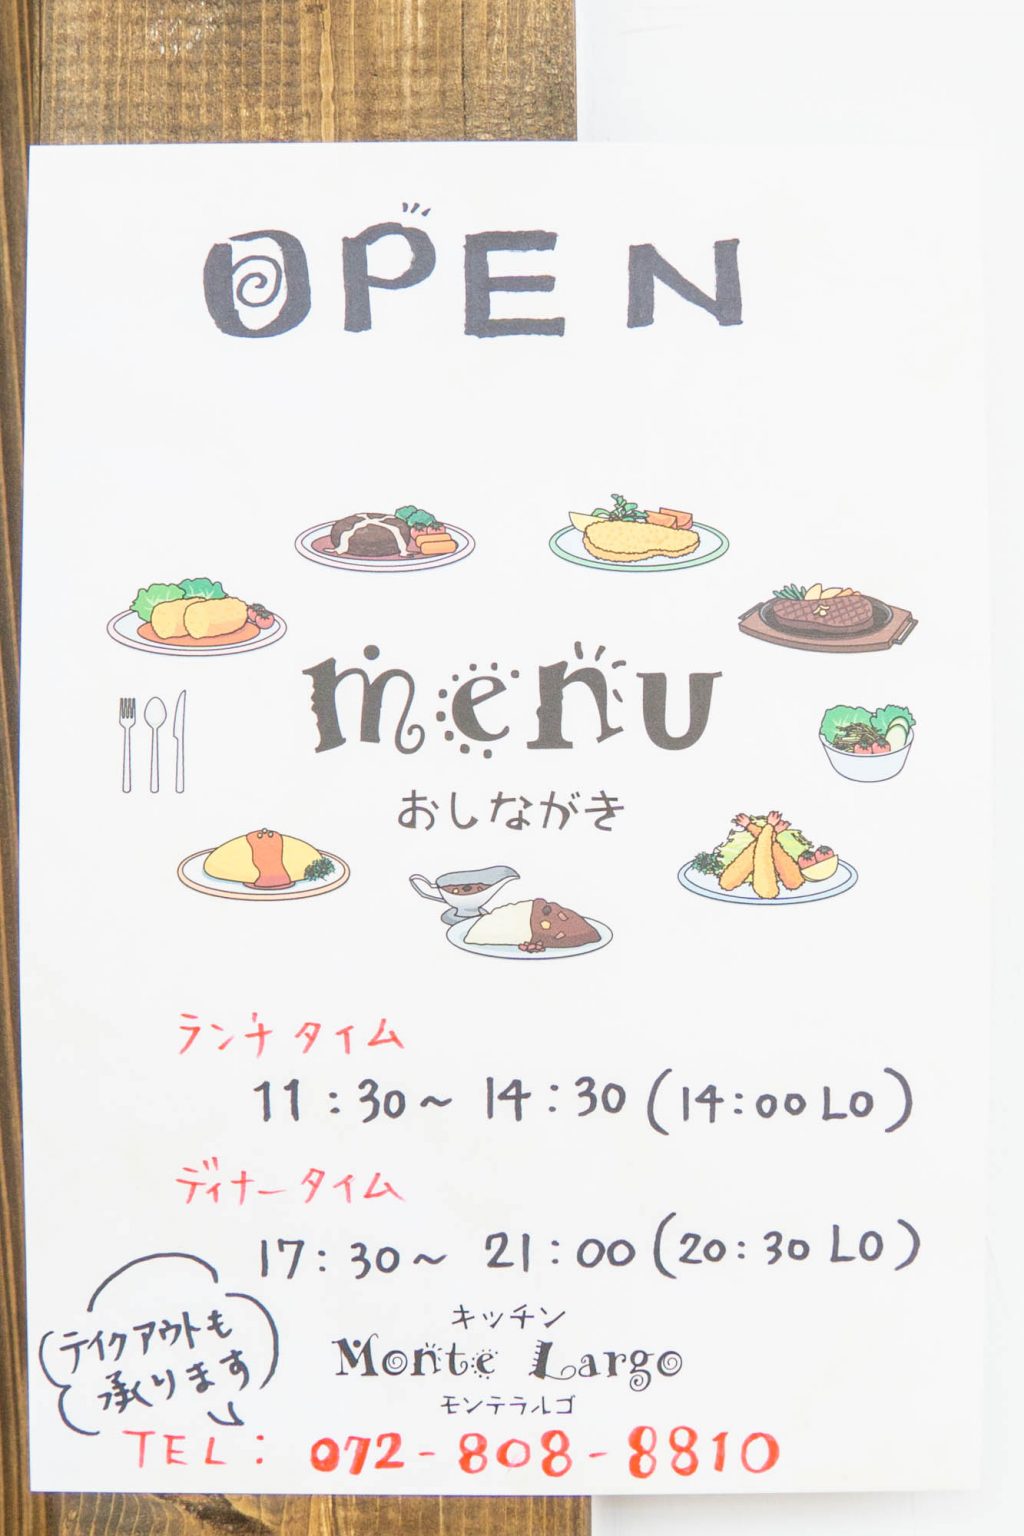 OPEN
menu
おしながき
ランチタイム
11:30～14:30(14:00 LO)
ディナータイム
17:30～21:00(20:30 LO)
テイクアウトも
承ります
キッチン
Monte Largo
モンテラルゴ
TEL: 072-808-8810